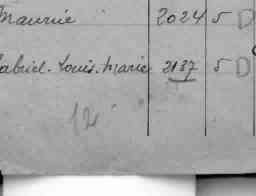 Maurice 2024 5 D
abriel. Louis. Marie 2137 5 D
12